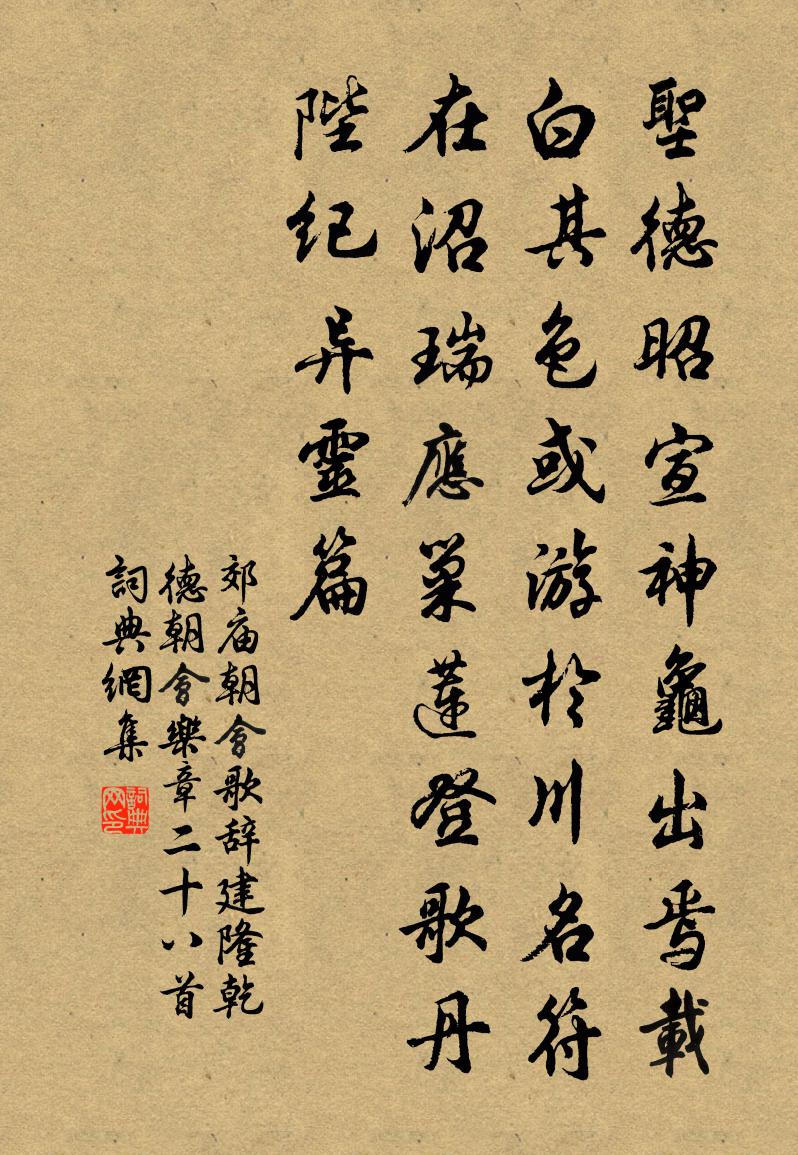 聖德昭宣神龜出焉載
白其色或游於川名符
在沼瑞應巢蓮登歌丹
陛纪异靈篇
郊庙朝會歌辞建隆乾
德朝會樂章二十八首
詞典網集
詞典网印